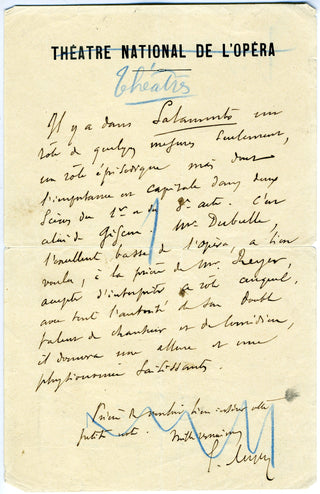 THÉATRE NATIONAL DE L'OPÉRA
Théâtres
Il y a dans Salammbô un
rôle de quelques mesures seulement,
un rôle épisodique mais dont
l'importance est capitale dans deux
scènes du 1er et du acte. C'est
celui de Giscon. Mr. Dubulle,
l'excellent basse de l'opéra, a bien
voulu, à la prière de Mr. Reyer,
accepter d'interpréter ce rôle auquel,
avec toute l'autorité de son double
talent de chanteur et de comédien,
il donnera une allure et une
physionomie saisissantes.
Prière de vouloir bien insérer cette
petite note. Mille remerciements
Reyer